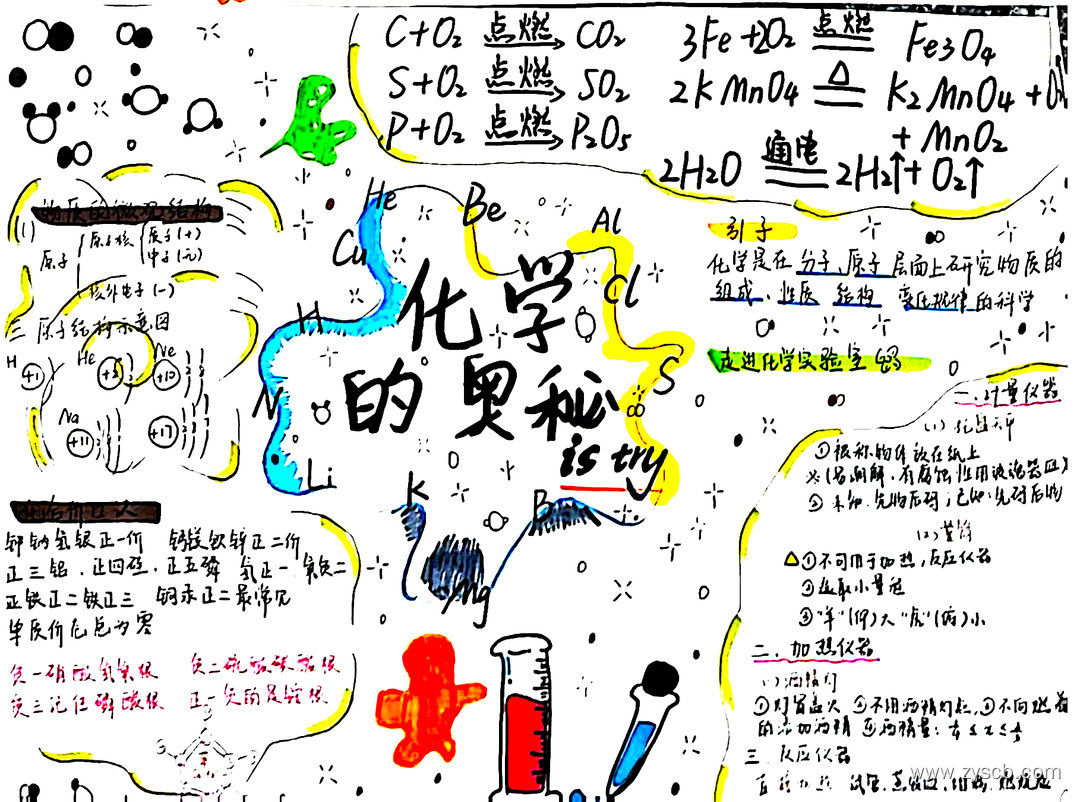 C+O₂ 点燃→ CO₂
S+O₂ 点燃→ SO₂
P+O₂ 点燃→ P₂O₅
3Fe+2O₂ 点燃═ Fe₃O₄
2KMnO₄ △═ K₂MnO₄+O₂
+MnO₂
2H₂O 通电═ 2H₂↑+O₂↑
物质的微观结构
(1)
原子
原子核
质子(+)
中子(无)
核外电子(-)
二 原子结构示意图
H He Ne
+1 +2 +10
Na
+11 +17
He Be Al
Cu Cl
H
N S
Li K B Mg
化学
的奥秘
is try
引子
化学是在分子、原子层面上研究物质的
组成、性质 结构 变化规律的科学
走进化学实验室
一.计量仪器
(1) 托盘天平
①被称物体放在纸上
※(易潮解,有腐蚀性用玻璃器皿)
②未知:先物后码;已知:先码后物
(2)量筒
①不可用于加热,反应仪器
②选取小量程
③"羊"(仰)大"虎"(俯)小
二.加热仪器
(1)酒精灯
的添加酒精 ④酒精量:
三.反应仪器
钾钠氢银正一价 钙镁钡锌正二价
正三铝.正四硅.正五磷 氢正一.氧负二
正铁正二铁正三 铜汞正二最常见
单质价态总为零
负一硝酸氢氧根 负二硫酸碳酸根
负三记住磷酸根 正一价的是铵根
www.zyscb.com